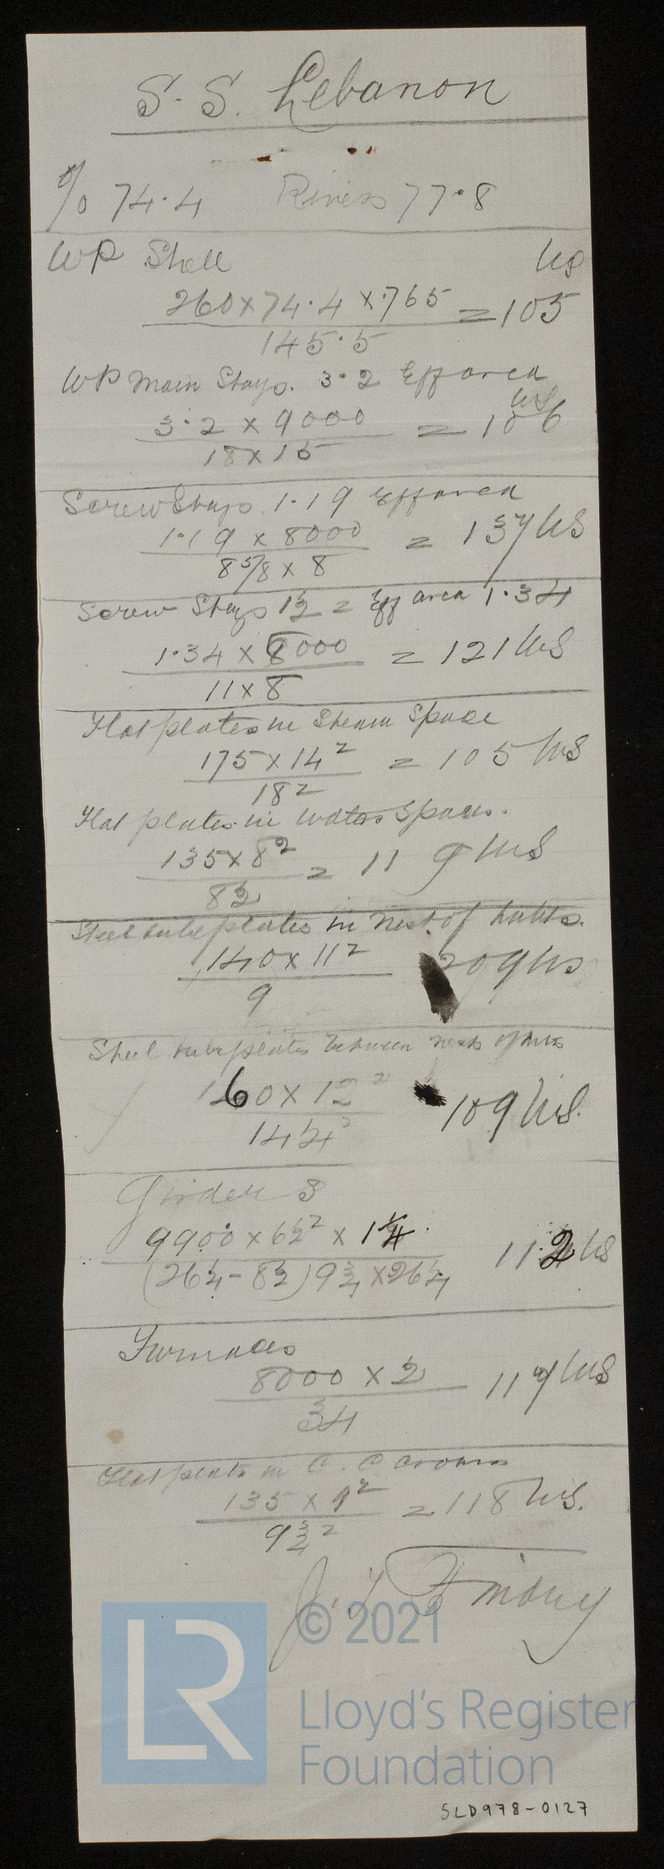 S. S. Lebanon
% 74.4 Rivets 77.8
WP Shell lbs
260 x 74.4 x .765 = 105
145.5
WP Main Stays. 3.2 Eff area
3.2 x 9000 = 106 lbs
18 x 15
Screw Stays 1.19 Eff area
1.19 x 8000 = 137 lbs
8 5/8 x 8
Screw Stays 1½ = Eff area 1.34
1.34 x 8000 = 121 lbs
11 x 8
Flat plates in Steam Space
175 x 14² = 105 lbs
18²
Flat plates in Water Spaces.
135 x 8² = 119 lbs
8½
Steel tube plates in Nest of tubes.
140 x 11² 209 lbs
9
Steel tube plates between nests of tubes
160 x 12² 109 lbs.
14½²
Girders
9900 x 6½² x 1¼ 112 lbs
(26¼ - 8½) 9¾ x 26¼
Furnaces
8000 x ½ 117 lbs
34
Flat plates in C. C Crowns
135 x 9² = 118 lbs.
9¾²
© 2021
LR
Lloyd's Register
Foundation
SLD978-0127